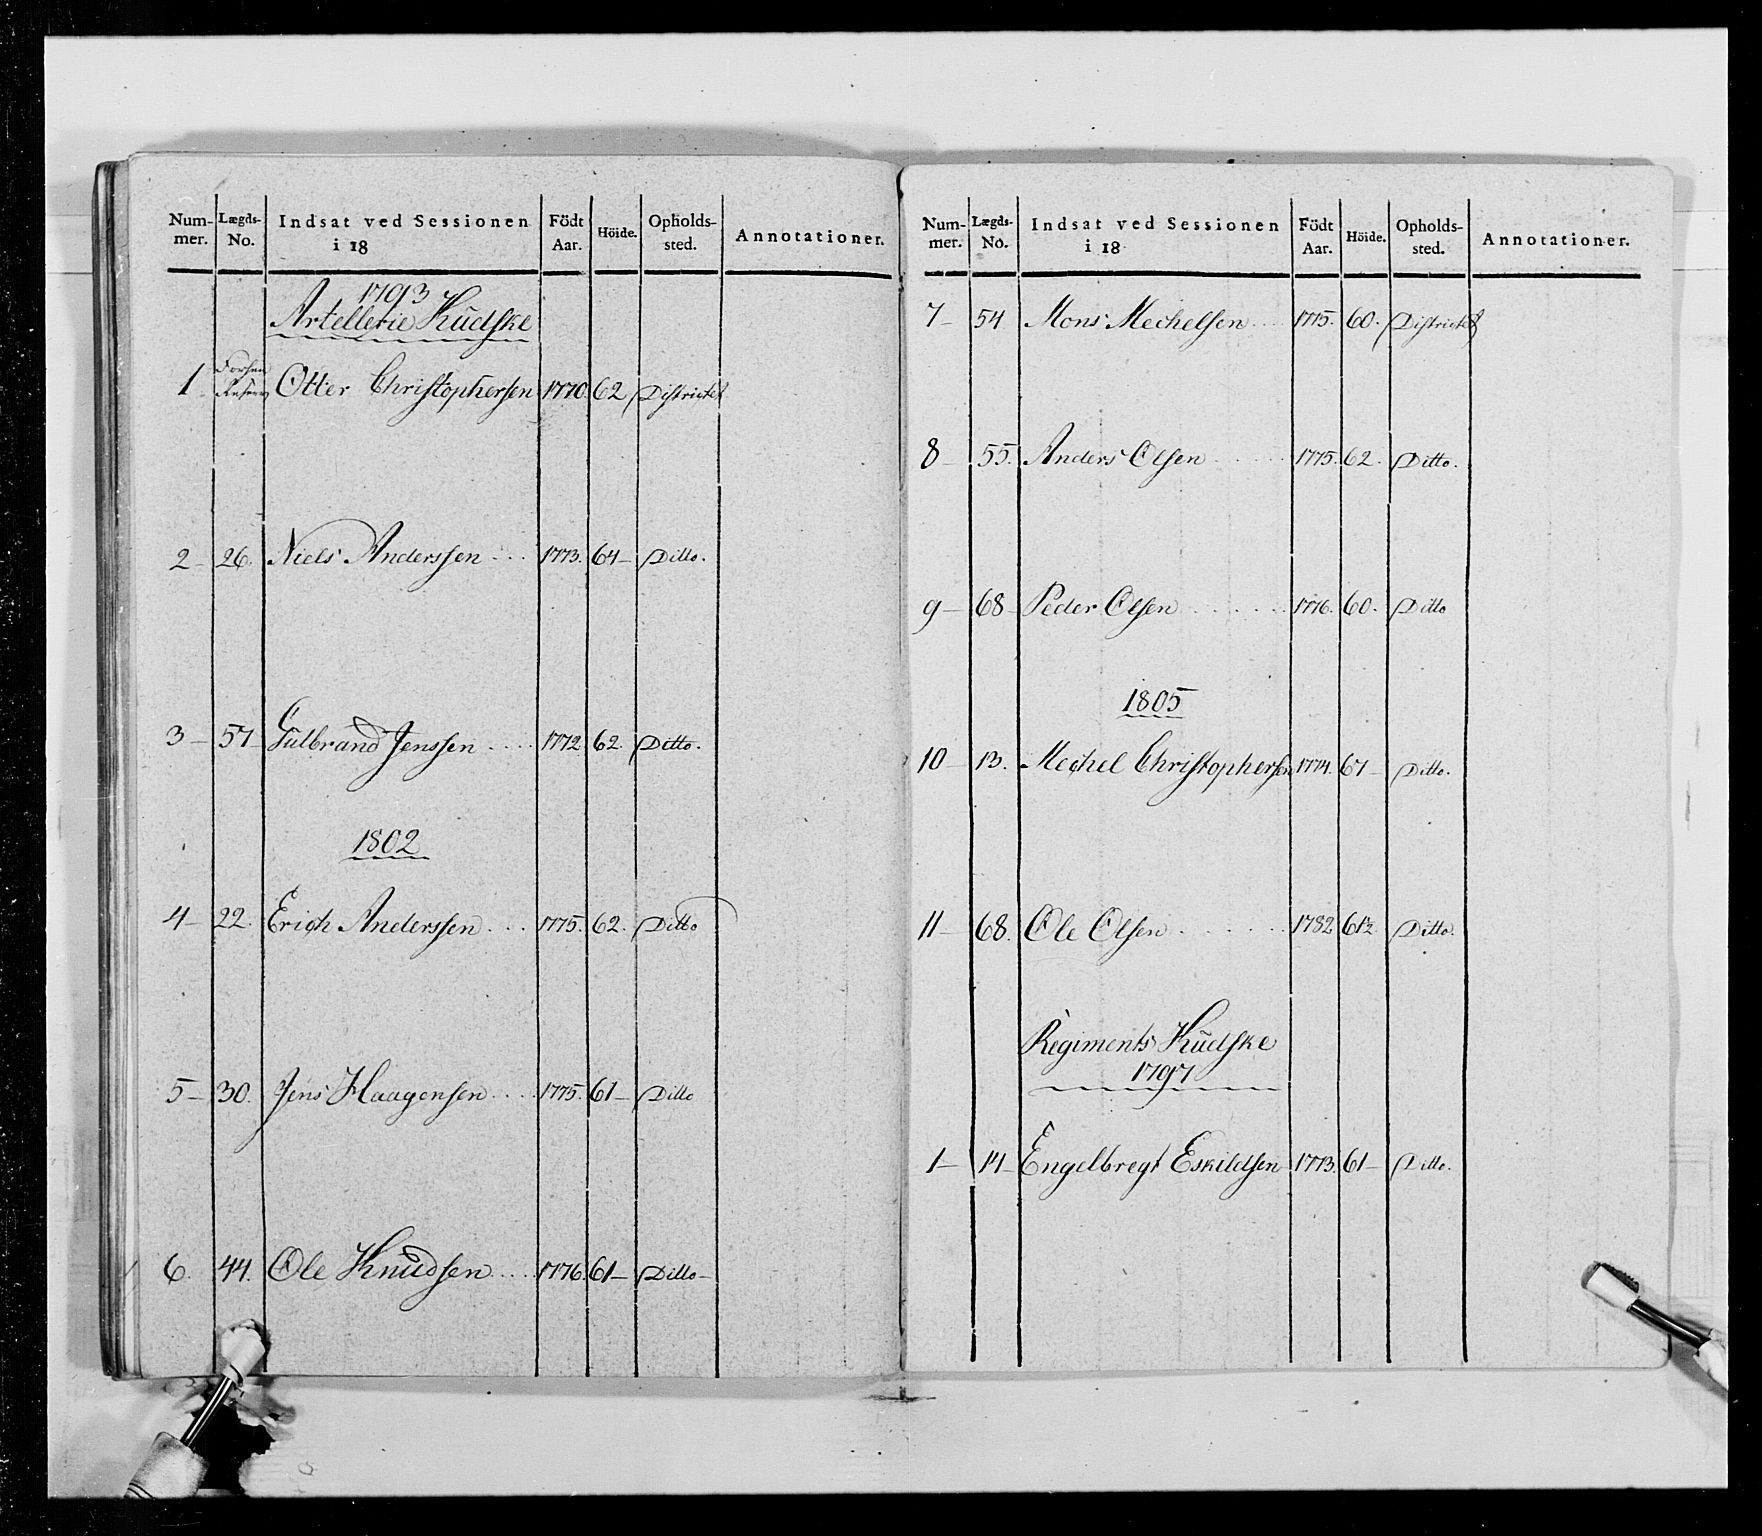 Num- Lægds- Indsat ved Sessionen Födt Höide. Opholds- Annotationer.
mer. No. i 18 Aar. sted.
1793
Artellerie Kudske
1 Otter Christophersen 1770. 62 Districtet
2 – 26. Niels Anderssen 1773. 64 – Ditto.
3 – 57 Gulbrand Jenssen 1772. 62. Ditto.
1802
4 – 22. Erich Anderssen 1775. 62. Ditto
5 – 30. Jens Haagensen 1775. 61 – Ditto
6. 44. Ole Knudsen 1776. 61 – Ditto –
Num- Lægds- Indsat ved Sessionen Födt Höide. Opholds- Annotationer.
mer. No. i 18 Aar. sted.
7 – 54 Mons Mechelsen 1775. 60. Districtet
8 – 55. Anders Olsen 1775. 62. Ditto.
9 – 68 Peder Olsen 1776. 60. Ditto
1805
10 – 13. Mechel Christophersen 1774. 67 – Ditto.
11 – 68. Ole Olsen 1782 61½ Ditto.
Regiments Kudske
1797
1 – 14 – Engelbregt Eskildsen 1773. 61 – Ditto.